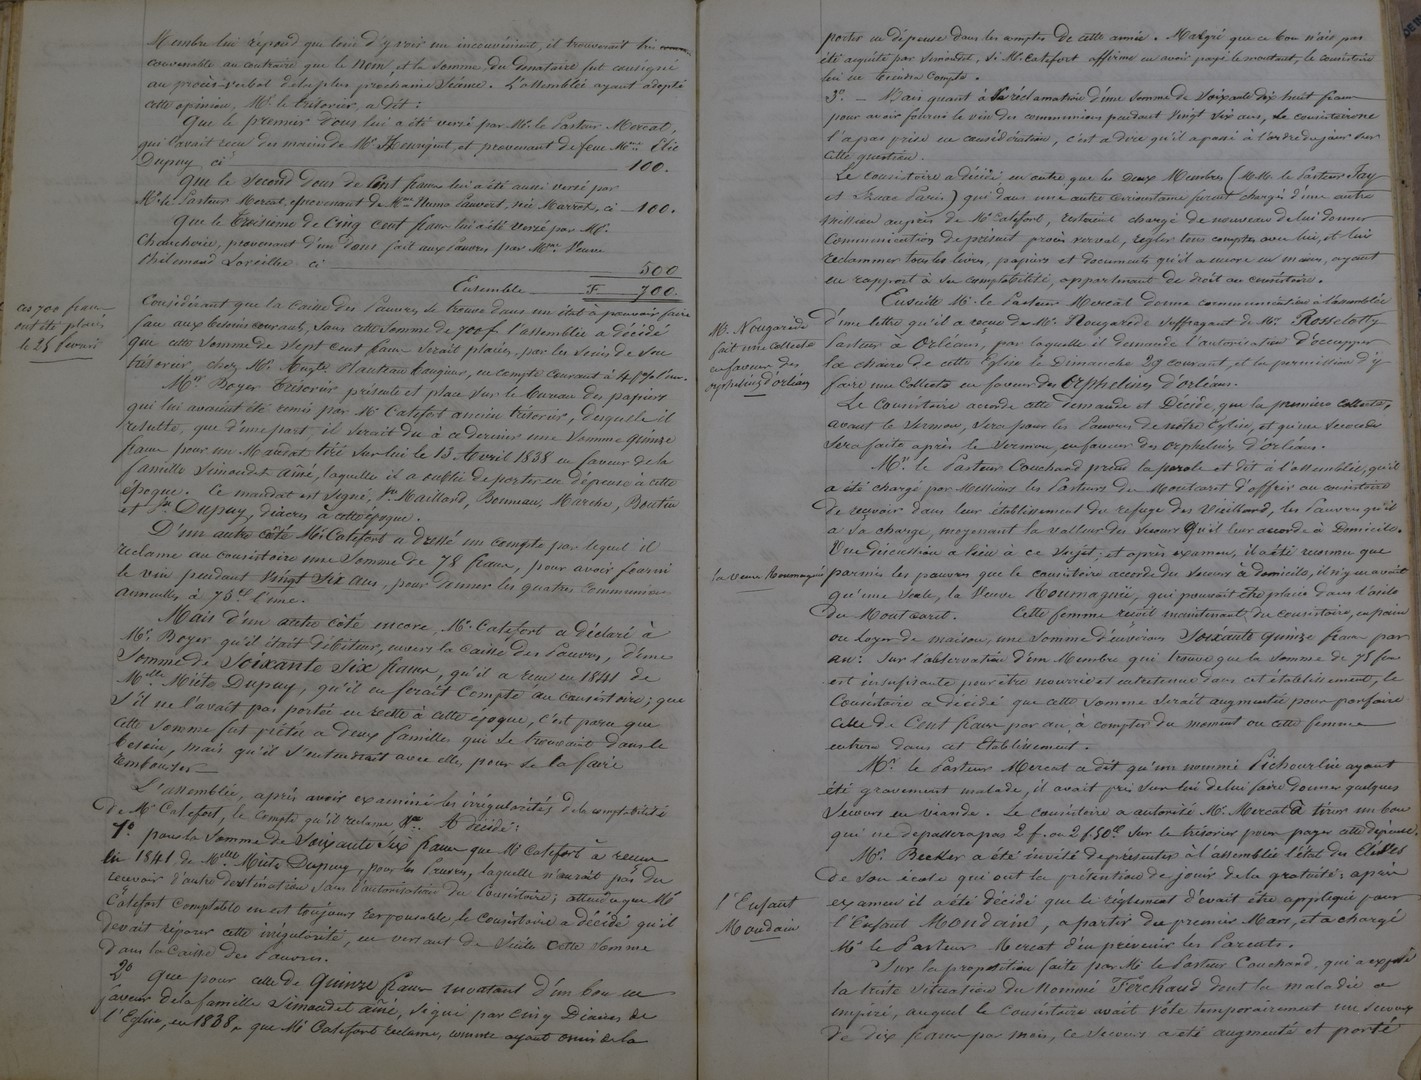 Membre lui répond que loin d'y voir un inconvénient, il trouverait très
convenable au contraire que le nom, et la somme, du donataire fut consigné
au procès-verbal de la plus prochaine séance. L'assemblée ayant adopté
cette opinion, Mr. le trésorier, a dit :
Que le premier dons lui a été versé par Mr. le Pasteur Mercat,
qui l'avait reçu des mains de Mr. et provenant de feue Mme. Élie
Dupuy, ci 100.
Que le second dons de Cent francs lui a été aussi versé par
Mr. le Pasteur Mercat, provenant de Mme Numa Lauvert, née Marrot, ci 100.
Que le troisième de Cinq Cent francs lui a été versé par Mr.
provenant d'un dons fait aux Pauvres par Mme Veuve
Philemond Loreilhe ci 500
Ensemble F 700.
ces 700 francs
ont été placés
le 25 février
Considérant que la Caisse des Pauvres se trouve dans un état à pouvoir faire
face aux besoins courants, sans cette somme de 700 f. l'assemblée a décidé
que cette somme de Sept Cent francs serait placée, par les soins de son
trésorier, chez Mr. en compte courant à 4 p% l'an.
Mr. Boyer trésorier, présente et place sur le bureau des papiers
qui lui avaient été remis par Mr. Catefort ancien trésorier, desquels il
résulte, que d'une part, il serait du à ce dernier une somme quinze
francs pour un Mandat tiré sur lui le 13 Avril 1838 en faveur de la
famille Simondet aîné, laquelle il a oublié de porter en dépense à cette
époque. Ce mandat est signé, Maillard, Bonneau, Marche, Boutin
et Dupuy, diacres à cette époque.
D'un autre côté Mr. Catefort a dressé un compte par lequel il
réclame au consistoire une somme de 78 francs, pour avoir fourni
le vin pendant vingt six ans, pour donner les quatre communions
annuelles à 75 cs l'une.
Mais d'un autre côté encore, Mr. Catefort a déclaré à
Mr. Boyer qu'il était débiteur, envers la Caisse des Pauvres, d'une
somme de Soixante Six francs, qu'il a reçu en 1841 de
Mlle Miéte Dupuy, qu'il en serait Compte au consistoire; que
s'il ne l'avait pas portée en recette à cette époque, c'est parce que
cette somme fut prêtée a deux familles qui se trouvaient dans le
besoin, mais qu'il s'entendrait avec elles, pour se la faire
rembourser
L'assemblée, après avoir examiné les irrégularités de la comptabilité
de Mr. Catefort, le compte qu'il réclame, A décidé :
1º. pour la somme de Soixante Six francs que Mr Catefort a reçue
en 1841 de Mlle Miéte Dupuy, pour les Pauvres, laquelle n'aurait pas du
recevoir d'autre destination sans l'autorisation du Consistoire; attendu que Mr
Catefort comptable en est toujours responsable, le consistoire a décidé qu'il
devait réparer cette irrégularité, en versant de suite cette somme
dans la Caisse des Pauvres.
2º Que pour celle de Quinze francs montant d'un bon en
faveur de la famille Simondet aîné, signé par cinq Diacres de
l'Eglise, en 1838, que Mr Catefort réclame, comme ayant omis de la
porter en dépense dans les comptes de cette année. Malgré que ce bon n'ais pas
été aquité par Simondet, si Mr. Catefort affirme en avoir payé le montant, le consistoire
lui en tiendra Compte.
3º. — Mais quant à sa réclamation d'une somme de Soixante dix huit francs
pour avoir fourni le vin des communions pendant vingt six ans, le consistoire ne
l'a pas prise en considération, c'est a dire qu'il a passé à l'ordre du jour sur
cette question.
Le consistoire a décidé en outre que les deux Membres (MM. le Pasteur Fay
et Isaac Paris) qui dans une autre circonstance furent chargés d'une autre
mission auprès de Mr Catefort, restraient chargé de nouveau de lui donner
communication du présent procès verval, règler tous comptes avec lui, et lui
réclammer tous les livres, papiers et documents qu'il a encore en mains, ayant
en rapport à sa comptabilité, appartenant de droit au consistoire.
Mr. Nougarède
fait une Collecte
en faveur des
orphelins d'orléans
Ensuite Mr. le Pasteur Mercat donne communication à l'assemblée
d'une lettre qu'il a reçue de Mr. Nougarede suffragant de Mr. Rosselotty
Pasteur à Orléans, par laquelle il demande l'autorisation d'occupper
la chaire de cette Église le Dimanche 29 courant, et la permission d'y
faire une Collecte en faveur des Orphelins d'orléans.
Le Consistoire accorde cette demande et Décide, que la première collecte,
avant le sermon, sera pour les Pauvres de notre Église, et qu'une seconde
sera faite après le Sermon, en faveur des orphelins d'orléans.
Mr. le Pasteur Couchaud prend la parole et dit à l'assemblée, qu'il
a été chargé par Messieurs les Pasteurs de Montcaret d'offrir au consistoire
de reçevoir dans leur établissement du refuge des Vieillard, les Pauvres qu'il
a à sa charge, moyenant la valleur du secour qu'il leur accorde à Domicile.
Une discussion a lieu à ce sujet; et après examen, il a été reconnu que
la Veuve Roumagnié
parmis les pauvres que le consistoire accorde du secours à domicile, il n'y en avait
qu'une seule, la Veuve Roumagnié, qui pouvait être placée dans l'asile
du Montcaret. Cette femme reçoit maintenant du consistoire, en pain
ou loyer de maison, une somme d'environs Soixante quinze francs par
an: Sur l'observation d'un Membre qui trouve que la somme de 75 fcs
est insufisante pour être nourrie et entretenue dans cet établissement, le
Consistoire a décidé que cette somme serait augmentée pour parfaire
celle de Cent francs par an, à compter du moment ou cette femme
entrera dans cet établissement.
Mr. le Pasteur Mercat a dit qu'un nommé Pichourlin ayant
été gravement malade, il avait pris sur lui de lui faire donner quelques
secours en viande. Le consistoire a autorisé Mr. Mercat à tirer un bon
qui ne dépassera pas 2 f. ou 2 f 50 cs sur le trésorier pour payer cette dépense.
Mr. Becker a été invité de présenter à l'assemblée l'état des Elèves
de son école qui ont la prétention de jouir de la gratuité: après
l'Enfant
Moudain
examen il a été décidé que le réglement devait être appliqué pour
l'Enfant Moudain, a partir du premier Mars, et a chargé
Mr. le Pasteur Mercat d'en prévenir les Parents.
Sur la proposition faite par Mr. le Pasteur Couchaud, qui a exposé
la triste situation du nommé Ferchaud dont la maladie a
empiré, auquel le Consistoire avait voté temporairement un secours
de dix francs par mois, ce secours a été augmenté et porté